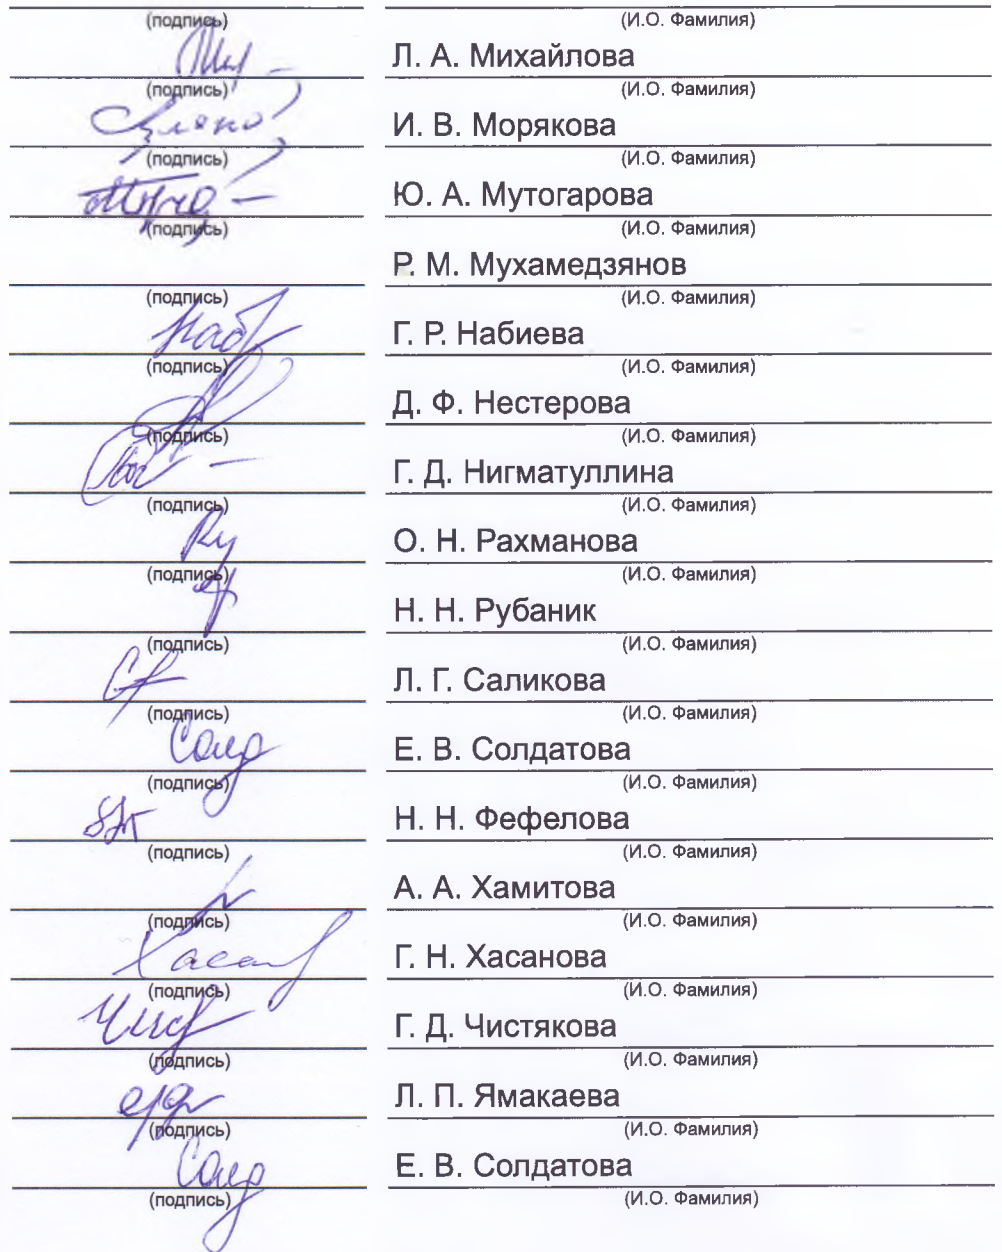 (подпись) (И.О. Фамилия)
Л. А. Михайлова
(подпись) (И.О. Фамилия)
И. В. Морякова
(подпись) (И.О. Фамилия)
Ю. А. Мутогарова
(подпись) (И.О. Фамилия)
Р. М. Мухамедзянов
(подпись) (И.О. Фамилия)
Г. Р. Набиева
(подпись) (И.О. Фамилия)
Д. Ф. Нестерова
(подпись) (И.О. Фамилия)
Г. Д. Нигматуллина
(подпись) (И.О. Фамилия)
О. Н. Рахманова
(подпись) (И.О. Фамилия)
Н. Н. Рубаник
(подпись) (И.О. Фамилия)
Л. Г. Саликова
(подпись) (И.О. Фамилия)
Солд Е. В. Солдатова
(подпись) (И.О. Фамилия)
Н. Н. Фефелова
(подпись) (И.О. Фамилия)
А. А. Хамитова
(подпись) (И.О. Фамилия)
Г. Н. Хасанова
(подпись) (И.О. Фамилия)
Г. Д. Чистякова
(подпись) (И.О. Фамилия)
Л. П. Ямакаева
(подпись) (И.О. Фамилия)
Солд Е. В. Солдатова
(подпись) (И.О. Фамилия)